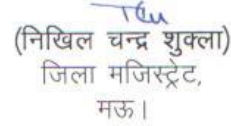 (निखिल चन्द्र शुक्ला)
जिला मजिस्ट्रेट,
मऊ।